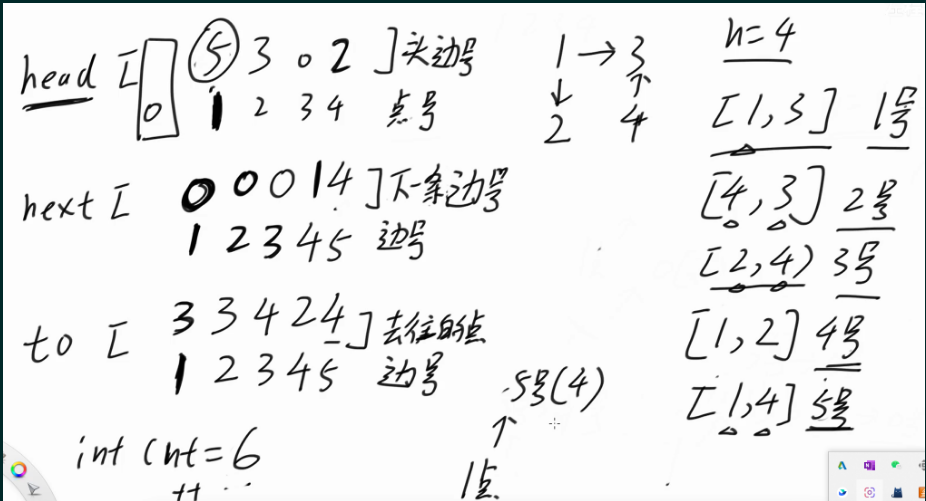 head [ 5 3 0 2 ] 头边号
0 1 2 3 4 点号
next [ 0 0 0 1 4 ] 下一条边号
1 2 3 4 5 边号
to [ 3 3 4 2 4 ] 去往的点
1 2 3 4 5 边号
int cnt = 6
1 → 3
↓ ↑
2 4
5号(4)
↑
1点
n = 4
[1,3] 1号
[4,3] 2号
[2,4) 3号
[1,2] 4号
[1,4] 5号